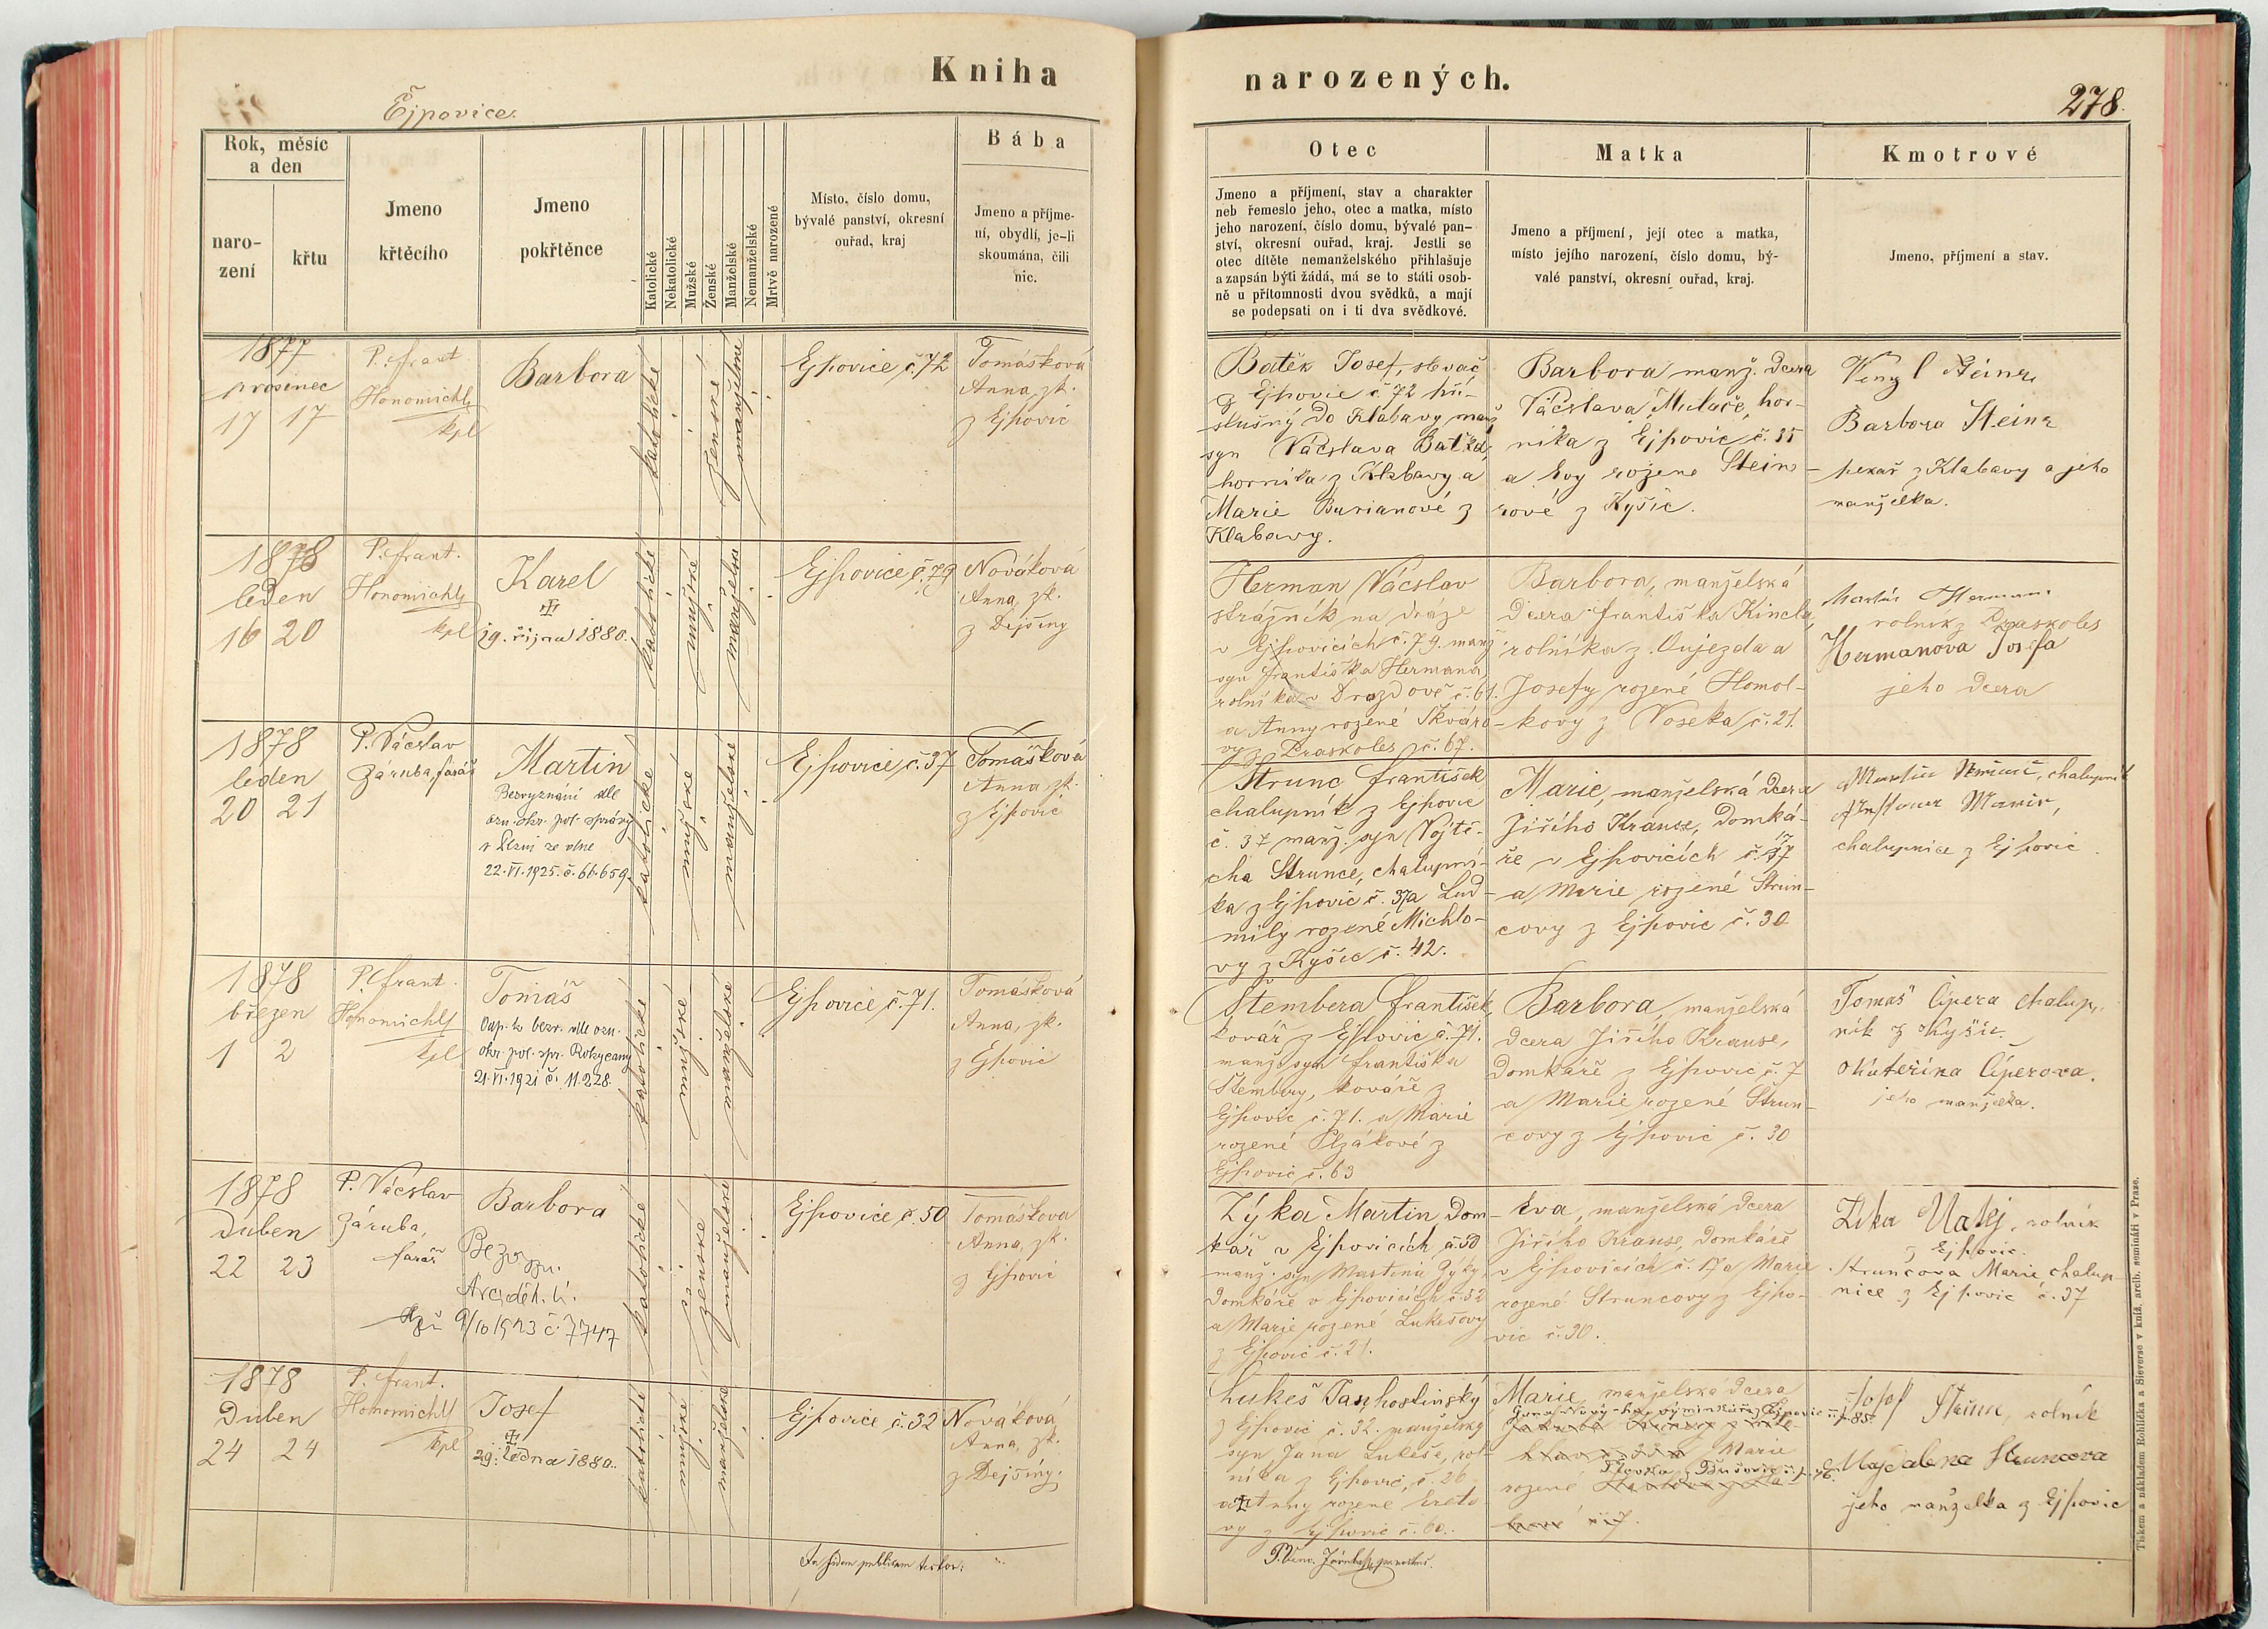 Kniha
narozených.
278.
Ejpovice.
Rok, měsíc
a den
naro-
zení
křtu
Jmeno
křtěcího
Jmeno
pokřtěnce
Katolické
Nekatolické
Mužské
Ženské
Manželské
Nemanželské
Mrtvě narozené
Místo, číslo domu,
bývalé panství, okresní
ouřad, kraj
Bába
Jmeno a příjme-
ní, obydlí, je-li
skoumána, čili
nic.
Otec
Jmeno a příjmení, stav a charakter
neb řemeslo jeho, otec a matka, místo
jeho narození, číslo domu, bývalé pan-
ství, okresní ouřad, kraj. Jestli se
otec dítěte nemanželského přihlašuje
a zapsán býti žádá, má se to státi osob-
ně u přítomnosti dvou svědků, a mají
se podepsati on i ti dva svědkové.
Matka
Jmeno a příjmení, její otec a matka,
místo jejího narození, číslo domu, bý-
valé panství, okresní ouřad, kraj.
Kmotrové
Jmeno, příjmení a stav.
1877
prosinec
17 17
P. Frant
Honomichl
kpl
Barbora
katolické
ženské
manželské
Ejpovice, č. 72
Tomášková
Anna, zk.
z Ejpovic
Batěk Josef, slevač
z Ejpovic č. 72 pří-
slušný do Klabavy manž.
syn Váčslava Baťka,
horníka z Klabavy a
Marie Burianové z
Klabavy.
Barbora manž. dcera
Váčslava Mulače, hor-
níka z Ejpovic č. 35
a Evy rozené Stein-
rové z Kyšic.
Barbora Steinr
pekař z Klabavy a jeho
manželka.
1878
leden
16 20
P. Frant.
Honomichl
kpl
Karel
19. října 1880.
katolické
mužské
manželské
Ejpovice, č. 79
Nováková
Anna, zk.
z Dejšiny
Herman Váčslav
strážník na dráze
v Ejpovicích č. 79. manž.
syn Františka Hermana
rolníka v Drozdově č. 61.
a Anny rozené Škváro-
vy z Praskoles, č. 67.
Barbora, manželská
dcera Františka Kincla,
rolníka z Oujezda a
Josefy rozené Homol-
kovy z Voseka č. 21.
Martin Herman
rolník z Praskoles
Hermanova Josefa
jeho dcera
1878
leden
20 21
P. Váčslav
Záruba, farář
Martin
Bezvyznání dle
ozn. okr. pol. správy
v Plzni ze dne
22. VI. 1925. č. 66.659.
katolické
mužské
manželské
Ejpovice, č. 37
Tomášková
Anna zk.
z Ejpovic
Strunc František
chalupník z Ejpovic
č. 37 manž. syn Vojtě-
cha Strunce, chalupní-
ka z Ejpovic č. 37 a Lud-
mily rozené Michlo-
vy z Kyšic č. 42.
Marie, manželská dcera
Jiřího Krause, domká-
ře v Ejpovicích č. 7
a Marie rozené Strun-
covy z Ejpovic č. 30
chalupnice z Ejpovic
1878
březen
1 2
P. Frant.
Honomichl
kpl
Tomáš
Odp. k bezv. dle ozn.
okr. pol. spr. Rokycany
21. VI. 1921 č. 11.228.
katolické
mužské
manželské
Ejpovice, č. 71.
Tomášková
Anna, zk.
z Ejpovic
Štembera František,
kovář z Ejpovic č. 71.
manž. syn Františka
Štembery, kováře z
Ejpovic č. 71. a Marie
rozené Plzákové z
Ejpovic č. 63
Barbora, manželská
dcera Jiřího Krause,
domkáře z Ejpovic č. 7
a Marie rozené Strun-
covy z Ejpovic č. 30
Tomáš Cipera chalup-
ník z Kyšic
Kateřina Ciperova.
jeho manželka.
1878
Duben
22 23
P. Váčslav
Záruba,
farář
Barbora
Bez vyzn.
9/10 1923 č. 7747
katolické
ženské
manželské
Ejpovice, č. 50
Tomáškova
Anna, zk.
z Ejpovic
Zýka Martin Dom-
kář v Ejpovicích č. 50
manž. syn Martina Zýky,
domkáře v Ejpovicích č. 52
a Marie rozené Lukešovy
z Ejpovic č. 21.
Eva, manželská dcera
Jiřího Krause, domkáře
v Ejpovicích č. 7 a Marie
rozené Struncovy z Ejpo-
vic č. 30.
Zika Matěj, rolník
z Ejpovic.
Struncova Marie, chalup-
nice z Ejpovic č. 37
1878
Duben
24 24
P. Frant.
Honomichl
kpl
Josef
29. ledna 1880.
katolické
mužské
manželské
Ejpovice č. 32
Nováková
Anna, zk.
z Dejšiny.
Lukeš Jan hostinský
z Ejpovic č. 32. manželský
syn Jana Lukeše, rol-
níka z Ejpovic, č. 26
a Anny rozené
vy z Ejpovic č. 60.
Marie, manželská dcera
Marie
rozené
č. 7.
Josef Strunc, rolník
Magdalena Struncova
jeho manželka z Ejpovic
In fidem publicam testor:
Tiskem a nákladem Rohlíčka a Sieverse v kníž. arcib. semináři v Praze.